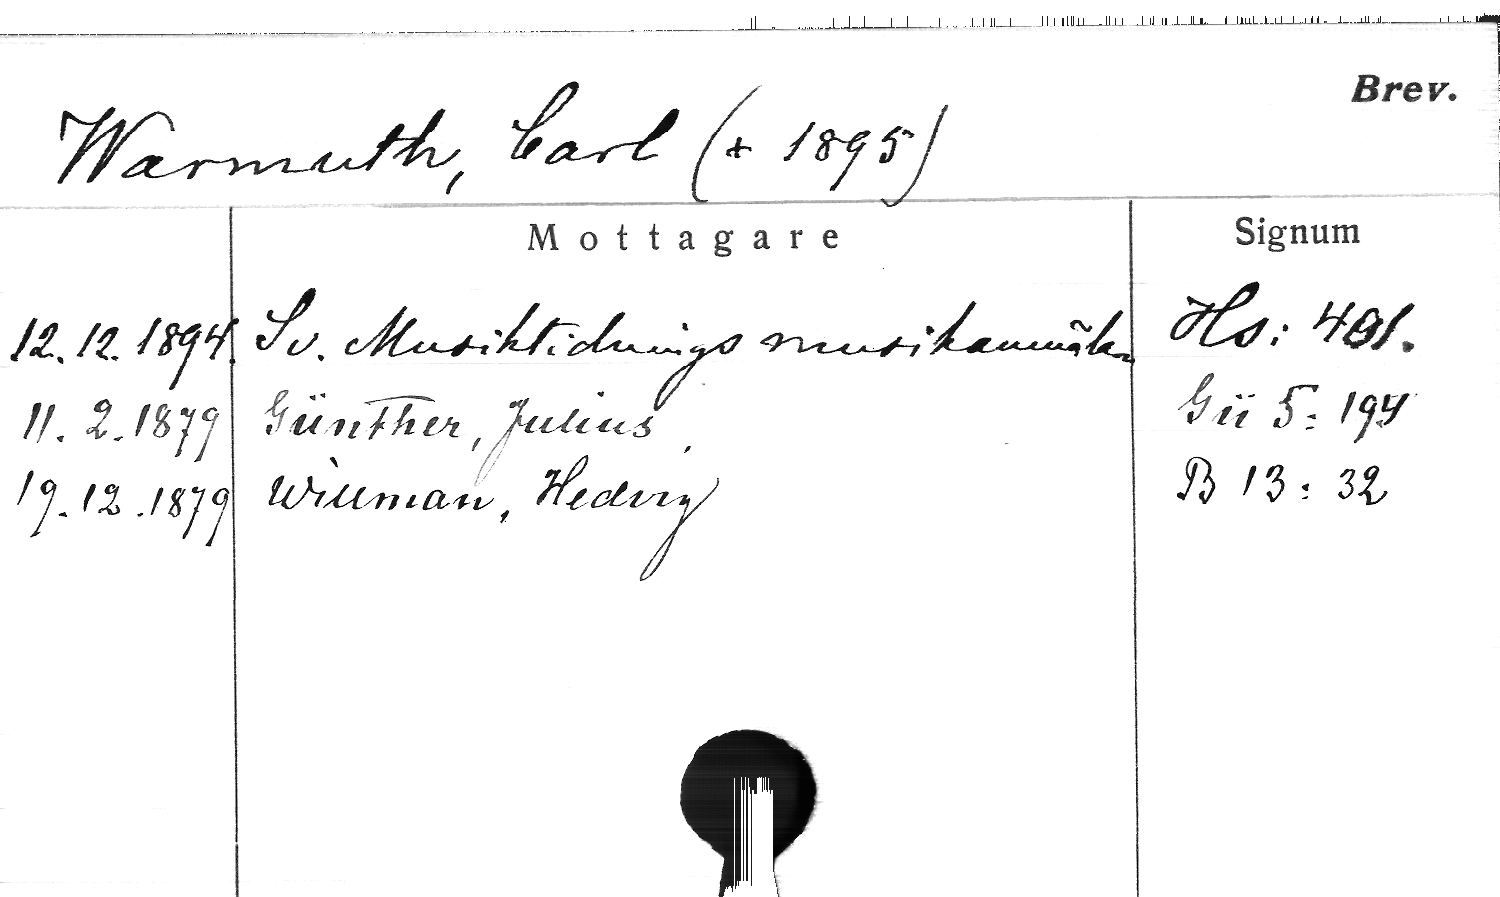 Brev.
Warmuth, Carl († 1895)
Mottagare Signum
12.12.1894. Sv. Musiktidnings musikanmälan Hs: 401.
11. 2. 1879 Günther, Julius. Gü 5: 194
19.12.1879 Willman, Hedvig B 13: 32